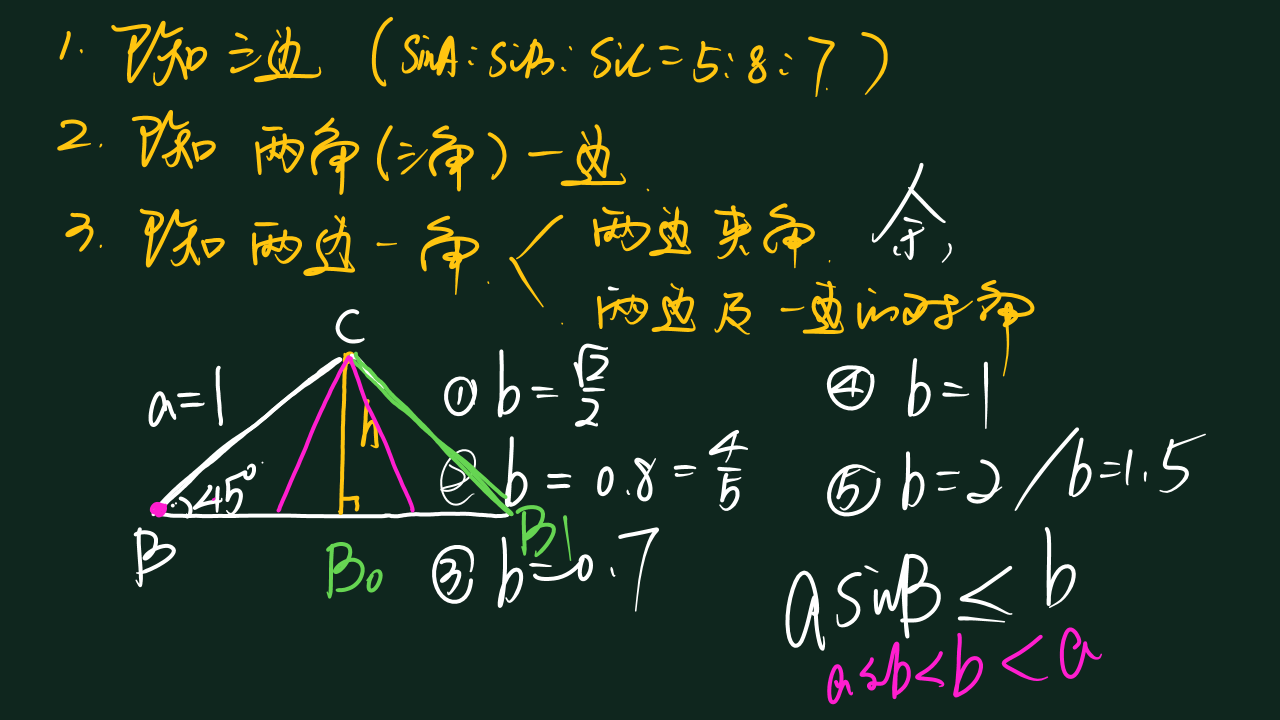 1. 已知三边 (sinA:sinB:sinC=5:8:7)
2. 已知两角(三角)一边.
3. 已知两边一角.
两边夹角. 余,
两边及一边的对角
C
a=1
h
45°
B
B₀
B₁
① b=√2/2
② b=0.8=4/5
③ b=0.7
④ b=1
⑤ b=2/b=1.5
a sinB≤b
asinb<b<a